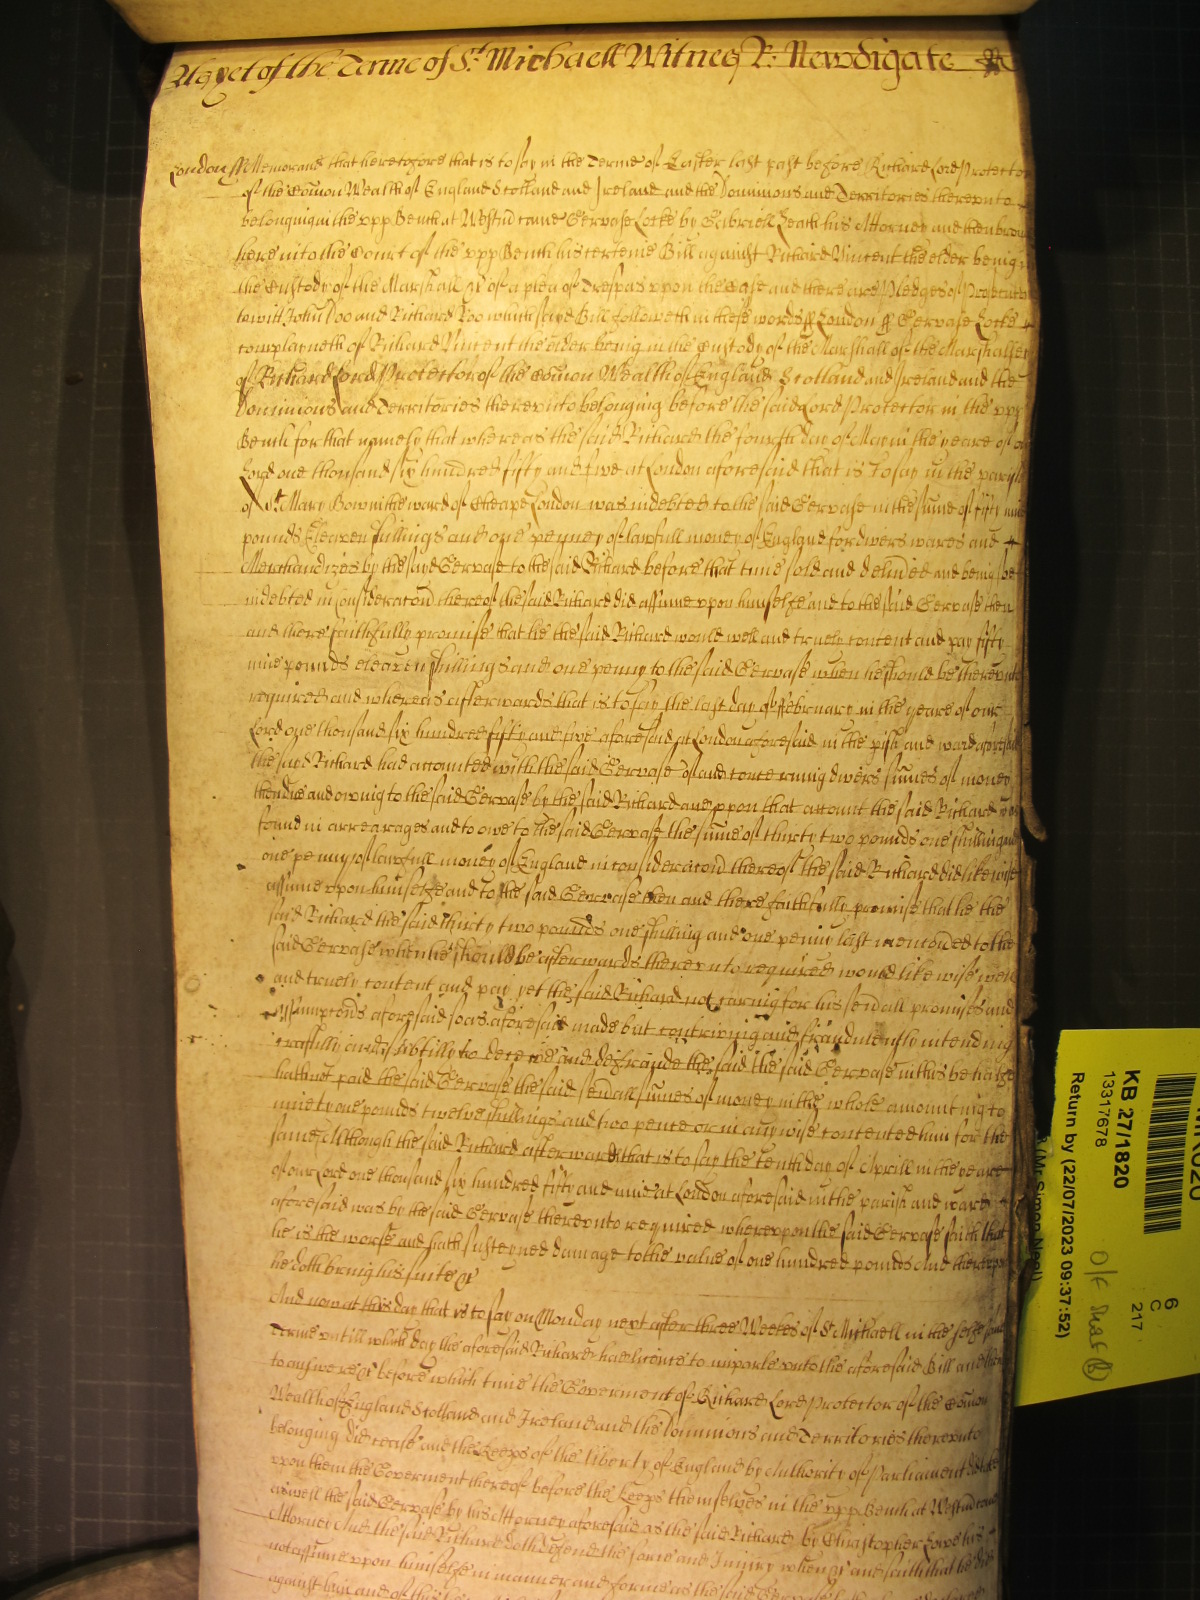 As yet of the Terme of St. Michaell Witnes R: Newdigate
London ss Memorand that heretofore that is to say in the Terme of Easter last past before Richard Lord Protector
of the Comon Wealth of England Scotland and Ireland and the Dominions and Territories thereunto
belonging in the upp Bench at Westm came Gervase Locke by Gabriell Heath his Attorney and then brou
here into the Court of the upp Bench his certeine Bill against Richard Vincent the elder being i
the Custody of the Marshall &c of a plea of Trespas upon the Case and there are Pledges of Prosecut
to witt John Doo and Richard Roo which said Bill followeth in these words ss London ss Gervase Locke
complayneth of Richard Vincent the elder being in the Custody of the Marshall of the Marshallsey
of Richard Lord Protector of the Comon Wealth of England Scotland and Ireland and the
Dominions and Territories thereunto belonging before the said Lord Protector in the upp
Bench for that namely that whereas the said Richard the fourth day of May in the yeare of o
Lord one thousand six hundred fifty and five at London aforesaid that is to say in the parish
of St. Mary Bow in the ward of Cheape London was indebted to the said Gervase in the sume of fifty nine
pounds Eleaven shillings and one penney of lawfull money of England for divers wares and
Merchandizes by the said Gervase to the said Richard before that time sold and delivered and being soe
indebted in Consideracon thereof the said Richard did assume upon himselfe and to the said Gervase then
and there faithfully promise that he the said Richard would well and truely content and pay fifty
nine pounds eleaven shillings and one penny to the said Gervase when he should be thereunto
required and whereas afterwards that is to say the last day of ffebruary in the yeare of our
Lord one thousand six hundred fifty and five aforesaid at London aforesaid in the pish and ward aforesaid
the said Richard had accounted with the said Gervase of and concerning divers sumes of money
then due and owing to the said Gervase by the said Richard and upon that account the said Richard was
found in arrearages and to owe to the said Gervase the sume of thirty two pounds one shilling and
one penny of lawfull money of England in consideracon thereof the said Richard did likewise
assume upon himselfe and to the said Gervase then and there faithfully promise that he the
said Richard the said thirty two pounds one shilling and one penny last menconed to the
said Gervase when he should be afterwards thereunto required would likewise well
and truely content and pay yet the said Richard not caring for his sevall promises and
Assumptions aforesaid soe as aforesaid made but contriving and fraudulently intending
craftily and subtilly to deceive and defraude the said the said Gervase in this behalfe
hath not paid the said Gervase the said sevall sumes of money in the whole amounting to
ninety one pounds twelve shillings and two pence or in anywise contented him for the
same Although the said Richard afterwards that is to say the tenth day of Aprill in the yeare
of our Lord one thousand six hundred fifty and nine at London aforesaid in the parish and ward
aforesaid was by the said Gervase thereunto required whereupon the said Gervase saith that
he is the worse and hath susteyned damage to the value of one hundred pounds And thereupon
he doth bring his suite &c
And now at this day that is to say on Monday next after three Weekes of St. Michaell in the selfe same
Terme untill which day the aforesaid Richard had licence to imparle unto the aforesaid Bill and then
to answere &c before which time the Goverment of Richard Lord Protector of the Comon
Wealth of England Scotland and Ireland and the Dominions and Territories thereunto
belonging did cease and the Keeps of the liberty of England by Authority of Parliament did take
upon them the Goverment thereof before the Keeps themselves in the upp Bench at Westm came
aswell the said Gervase by his Attorney aforesaid as the said Richard by Christopher Lowe his
Attorney And the said Richard doth defend the force and Injury when &c and saith that he did
not assume upon himselfe in manner and forme as the said Gervase
against him and of this he
KB 27/1820
13317678
Return by (22/07/2023 09:37:52)
(Mr Simon Neal)
6
C
217